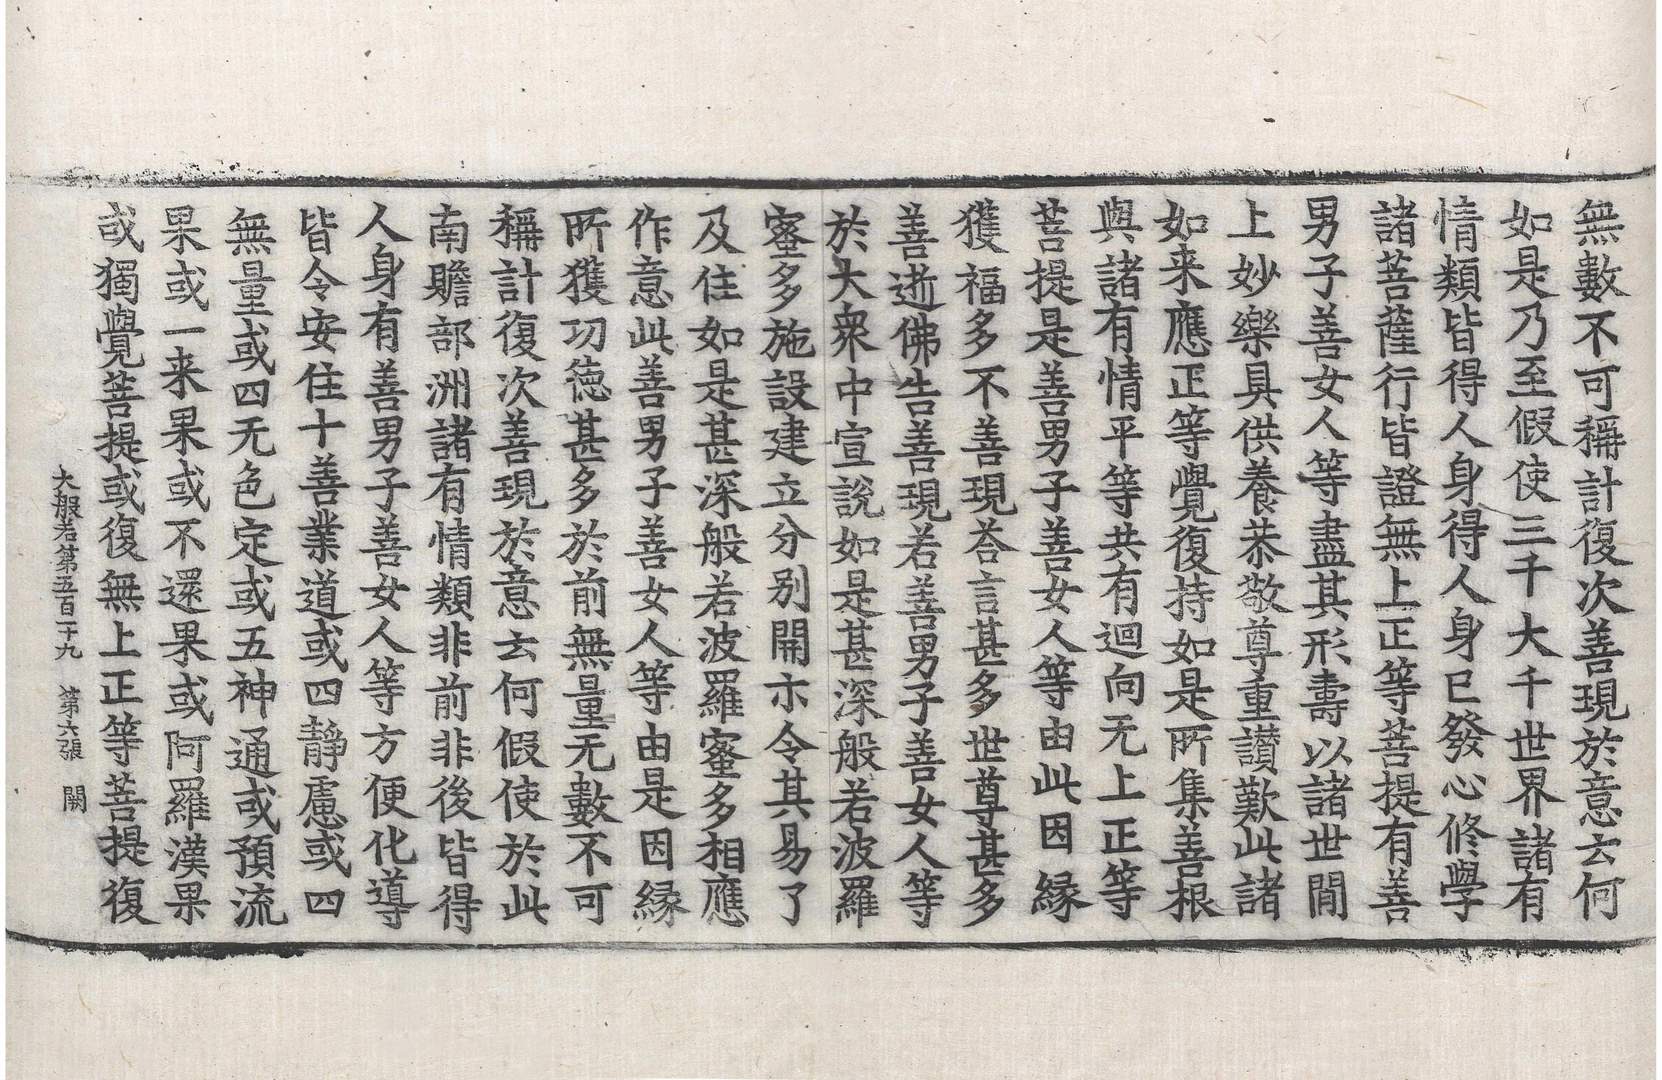 無數不可稱計復次善現於意云何
如是乃至假使三千大千世界諸有
情類皆得人身得人身已發心修學
諸菩薩行皆證無上正等菩提有善
男子善女人等盡其形壽以諸世間
上妙樂具供養恭敬尊重讃歎此諸
如来應正等覺復持如是所集善根
與諸有情平等共有迴向无上正等
菩提是善男子善女人等由此因縁
獲福多不善現荅言甚多世尊甚多
善逝佛告善現若善男子善女人等
於大衆中宣說如是甚深般若波羅
蜜多施設建立分别開示令其易了
及住如是甚深般若波羅蜜多相應
作意此善男子善女人等由是因縁
所獲功德甚多於前無量无數不可
稱計復次善現於意云何假使於此
南贍部洲諸有情類非前非後皆得
人身有善男子善女人等方便化導
皆令安住十善業道或四靜慮或四
無量或四无色定或五神通或預流
果或一来果或不還果或阿羅漢果
或獨覺菩提或復無上正等菩提復
大般若第五百十九　第六張　闕